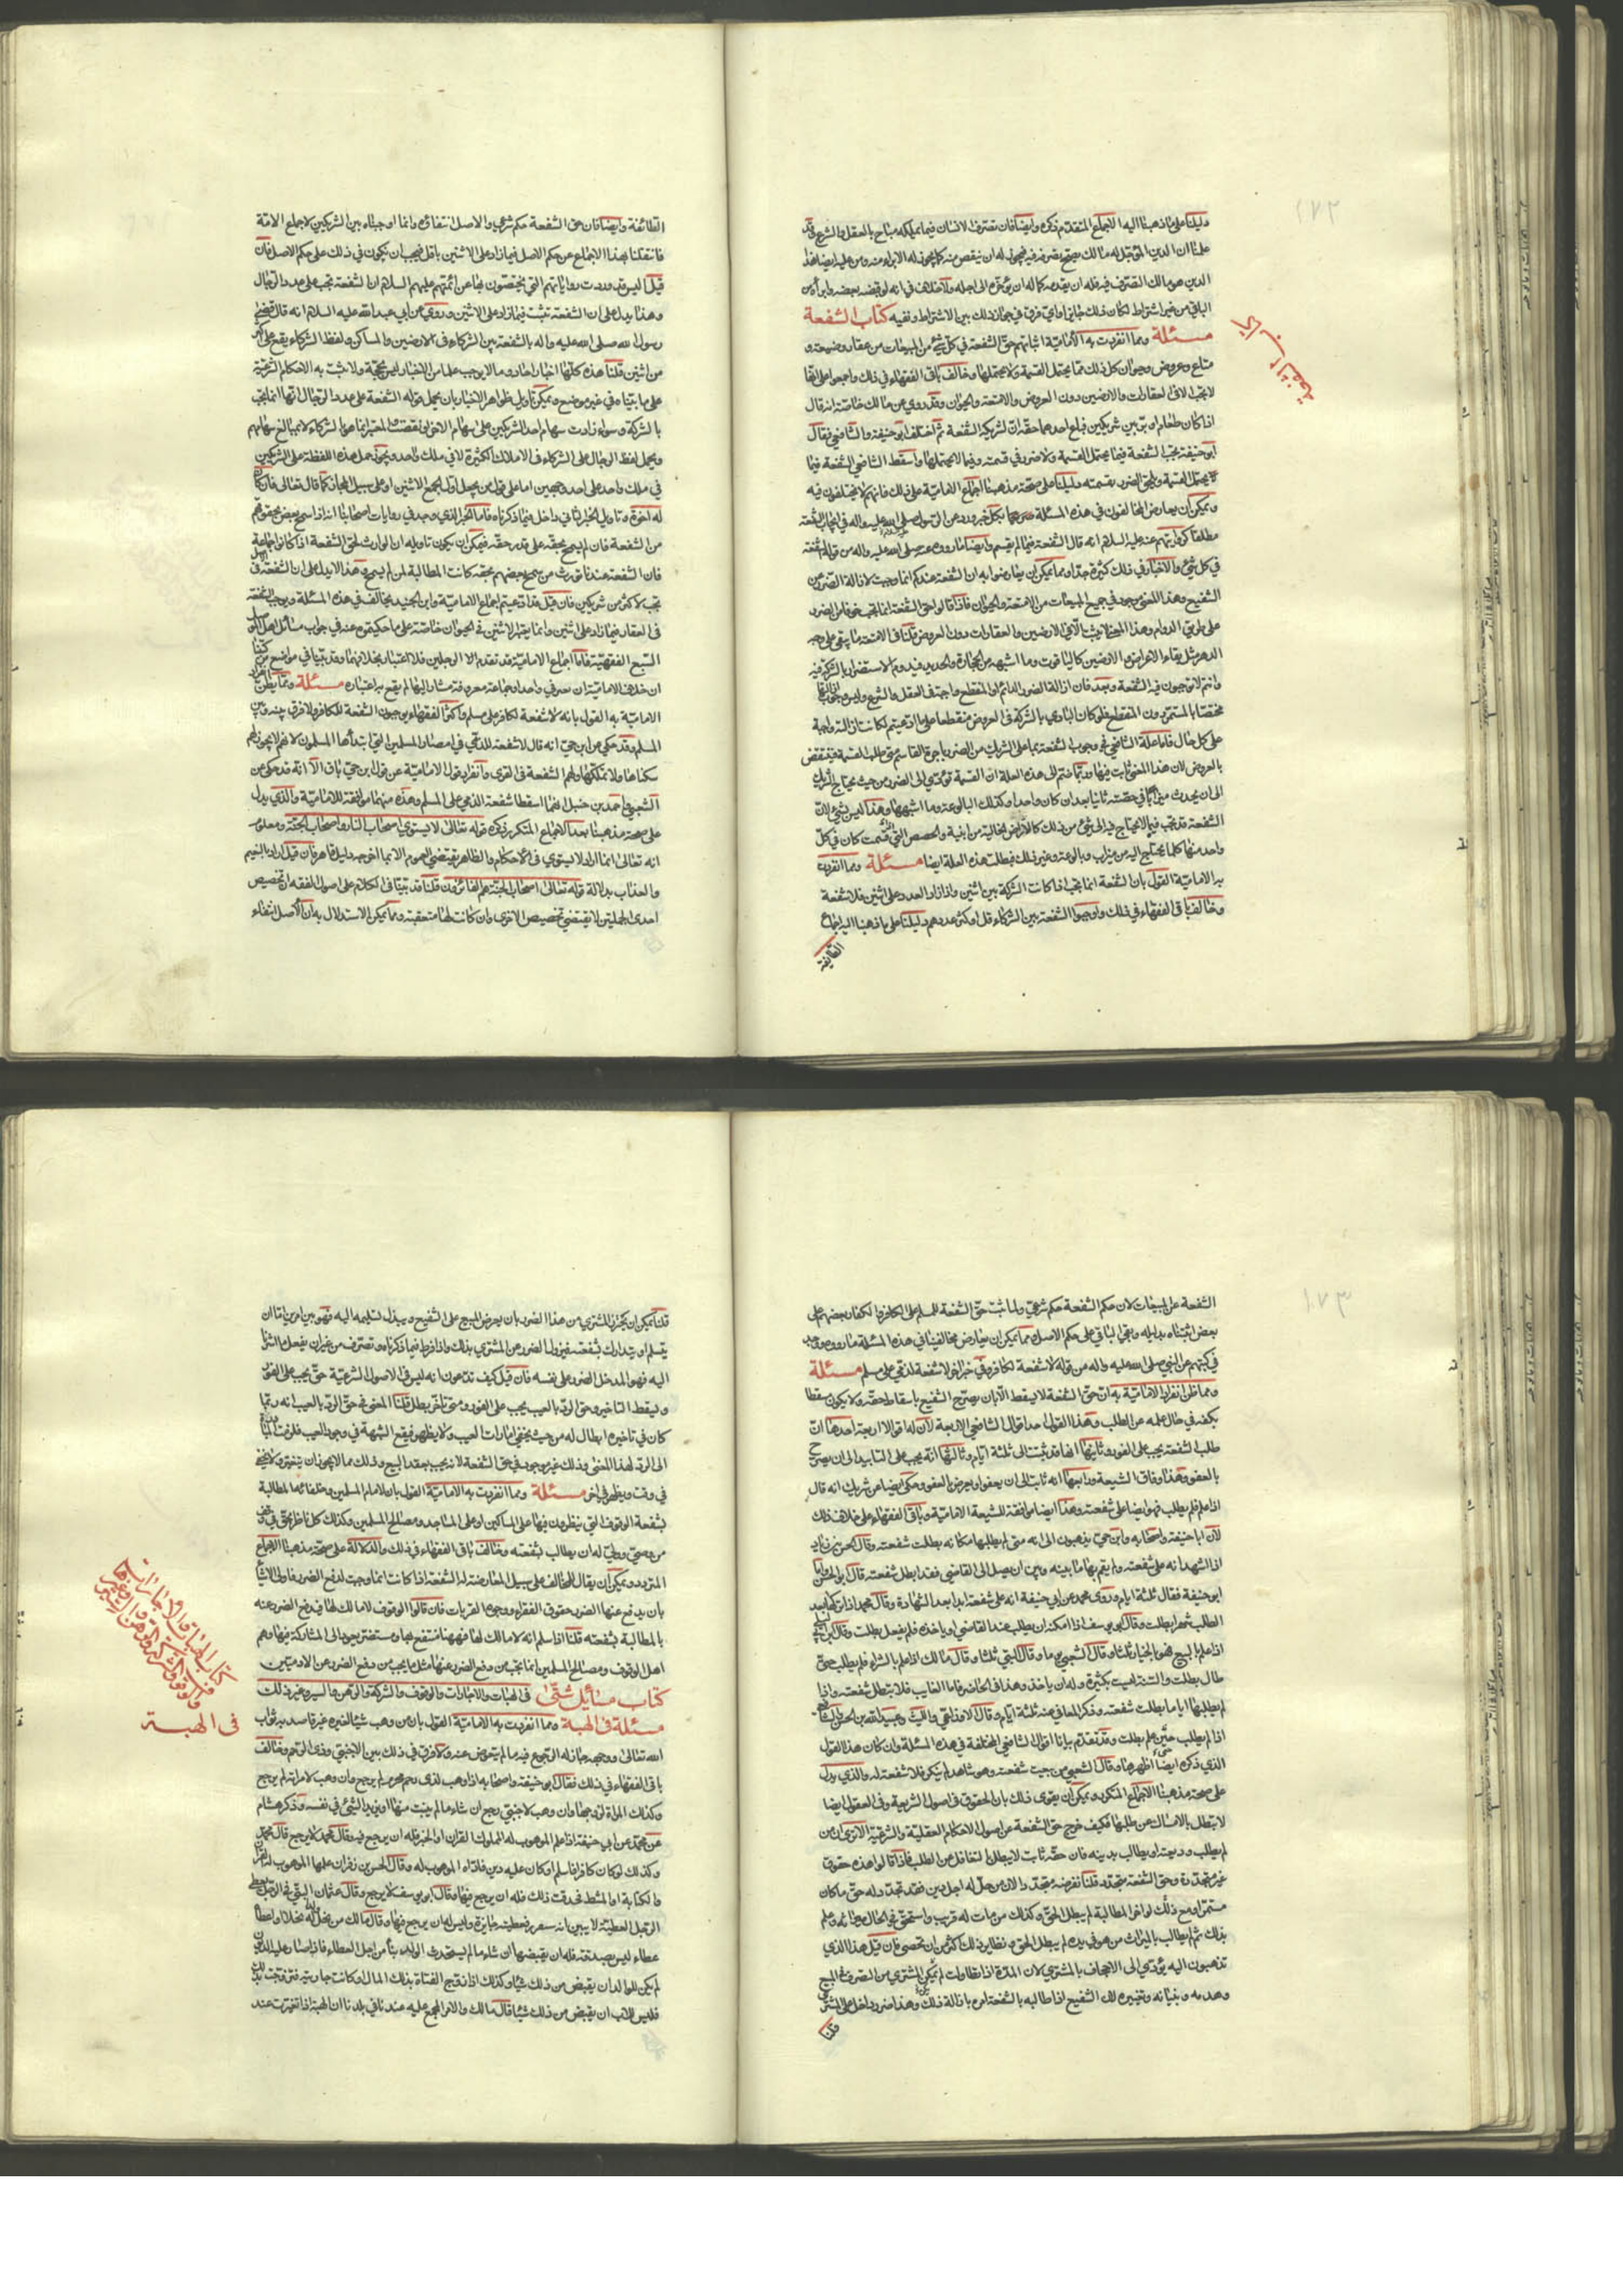 ١٧٢
دليلنا على ما ذهبنا اليه الاجماع المتقدم ذكره وايضا فان تصرف الانسان فيما يملكه مباح بالعقل والشرع وقد
علمنا ان الدين المؤجل له مالك يصح تصرفه فيه فيجوز له ان ينقص منه كما يجوز له الابراء منه ومن عليه ايضا هذا
الدين هو مالك التصرف فيه فله ان يقدمه كما له ان يؤخره الى اجله ولا خلاف في انه لو قبض بعضه وابرأه من
الباقي من غير اشتراط لكان ذلك جايزا واي فرق في جواز ذلك بين الاشتراط ونفيه كتاب الشفعة
مسئلة ومما انفردت به الامامية اثباتهم حق الشفعة في كل شيء من المبيعات من عقار وضيعة و
متاع وعروض وحيوان كل ذلك مما يحتمل القسمة ولا يحتملها وخالف باقي الفقهاء في ذلك واجمعوا على انها
لا تجب الا في العقارات والارضين دون العروض والامتعة والحيوان وقد روي عن مالك خاصة انه قال
اذا كان طعام او بر بين شريكين فباع احدهما حقه ان لشريكه الشفعة ثم اختلف ابو حنيفة والشافعي فقال
ابو حنيفة تجب الشفعة فيما يحتمل القسمة ولا ضرر في قسمته وفيما لا يحتملها واسقط الشافعي الشفعة فيما
لا يحتمل القسمة ويلحق الضرر بقسمته دليلنا على صحة مذهبنا اجماع الامامية على ذلك فانهم لا يختلفون فيه
ويمكن ان يعارض المخالفون في هذه المسئلة بكل خبر ورد عن الرسول صلى الله عليه واله في ايجاب الشفعة
مطلقا كروايتهم عنه عليه السلام انه قال الشفعة فيما لم يقسم وايضا ما رووه عنه صلى الله عليه واله من قوله الشفعة
في كل شيء والاخبار في ذلك كثيرة جدا ومما يمكن ان يعارضوا به ان الشفعة عندكم انما وجبت لازالة الضرر عن
الشفيع وهذا المعنى موجود في جميع المبيعات من الامتعة والحيوان فاذا قالوا حق الشفعة انما يجب خوفا من الضرر
على طريق الدوام وهذا المعنى لا يثبت الا في الارضين والعقارات دون العروض قلنا في الامتعة ما يبقى على وجه
الدهر مثل بقاء الارضين كالياقوت وما اشبهه من الحجارة والحديد فيدوم الاستضرار بالشركة فيه
وانتم لا توجبون فيه الشفعة وبعد فان ازالة الضرر الدائم او المنقطع واجبة في العقل والشرع وليس وجوب
مختصا بالمستمر دون المنقطع فلو كان التأذي بالشركة في العروض منقطعا على ما ادعيتم لكانت ازالته واجبة
على كل حال فاما علة الشافعي في وجوب الشفعة بما على الشريك من الضرر باجرة القاسم متى طلب القسمة فينتقض
بالعروض لان هذا المعنى ثابت فيها وربما ضم الى هذه العلة ان القسمة تؤدي الى الضرر من حيث يحتاج الشريك
الى ان يحدث ميزابا في حصته ثانيا بعد ان كان واحدا وكذلك البالوعة وما اشبهها وهذا ليس بشيء لان
الشفعة قد تجب فيما لا يحتاج فيه الى شيء من ذلك كالارض الخالية من ابنية والحصص التي قسمت كان في كل
واحد منها كلما يحتاج اليه من ميزاب وبالوعة وغير ذلك فبطلت هذه العلة ايضا مسئلة ومما انفردت
به الامامية القول بان الشفعة انما تجب اذا كانت الشركة بين اثنين واذا زاد العدد على اثنين فلا شفعة
وخالف باقي الفقهاء في ذلك واوجبوا الشفعة بين الشركاء قل او كثر عددهم دليلنا على ما ذهبنا اليه اجماع
الطائفة
الطائفة وايضا فان حق الشفعة حكم شرعي والاصل انتفاؤه وانما اوجبناه بين الشريكين لاجماع الامة
فانتقلنا بهذا الاجماع عن حكم الاصل فيما زاد على الاثنين باق فيجب ان يكون في ذلك على حكم الاصل فان
قيل اليس قد وردت رواياتهم التي يختصون بها عن ائمتهم عليهم السلام ان الشفعة تجب على عدد الرجال
وهذا يدل على ان الشفعة تثبت فيما زاد على الاثنين وروي عن ابي عبد الله عليه السلام انه قال قضى
رسول الله صلى الله عليه واله بالشفعة بين الشركاء في الارضين والمساكن ولفظ الشركاء يقع على اكثر
من اثنين قلنا هذه كلها اخبار احاد وما لا يوجب علما من الاخبار ليس بحجة ولا تثبت به الاحكام الشرعية
على ما بيناه في غير موضع ويمكن تاويل ظواهر الاخبار بان يحمل قوله الشفعة على عدد الرجال انها انما تجب
بالشركة وسواء زادت سهام احد الشريكين على سهام الاخر او نقصت المعتبر انما هو الشركاء لا بمبالغ سهامهم
ويحمل لفظ الرجال على الشركاء في الاملاك الكثيرة لا في ملك واحد ويجوز حمل هذه اللفظة على الشريكين
في ملك واحد على احد وجهين اما على قول من يجعل اقل الجمع الاثنين او على سبيل المجاز كما قال تعالى فان كان
له اخوة وتاويل الخبر الثاني داخل فيما ذكرناه فاما الخبر الذي وجد في روايات اصحابنا انه اذا سمح بعض بحقوقهم
من الشفعة فان لم يسمح بحقه على قدر حقه فيمكن ان يكون تاويله ان الوارث لحق الشفعة اذا كانوا جماعة
فان الشفعة عندنا تورث متى سمح بعضهم بحقه كانت المطالبة لمن لم يسمح وهذا لا يدل على ان الشفعة في
تجب لاكثر من شريكين فان قيل قد ادعيتم اجماع الامامية وابن الجنيد يخالف في هذه المسئلة ويوجب الشفعة
في العقار فيما زاد على اثنين وانما يعتبر الاثنين في الحيوان خاصة على ما حكيتموه عنه في جواب مسائل اهل الموصل
السبع الفقهية قلنا اجماع الامامية قد تقدم الرجلين فلا اعتبار بخلافهما وقد بينا في مواضع من كتبنا
ان خلاف الامامية ان معروفي واحدا وجماعة معروفة مشار اليها لم يقع به اعتبار مسئلة ومما يظن انفراد
الامامية به القول بانه لا شفعة لكافر على مسلم واكثر الفقهاء يوجبون الشفعة للكافر ولا فرق بينه وبين
المسلم وقد حكي عن ابن حي انه قال لا شفعة للذمي في امصار المسلمين التي ابتدأها المسلمون لانهم لا يجوز لهم
سكناها ولا تملكها ولهم الشفعة في القرى وانفراد قول الامامية عن قول ابن حي باق الا انه قد حكي عن
الشعبي واحمد بن حنبل انهما اسقطا شفعة الذمي على المسلم وهذه منهما موافقة للامامية والذي يدل
على صحة مذهبنا بعد الاجماع المتكرر ذكره قوله تعالى لا يستوي اصحاب النار واصحاب الجنة ومعلوم
انه تعالى انما اراد لا يستوي في الاحكام والظاهر يقتضي العموم الا ما اخرجه دليل قاهر فان قيل اراد بالنعيم
والعذاب بدلالة قوله تعالى اصحاب الجنة هم الفائزون قلنا قد بينا في الكلام على اصول الفقه ان تخصيص
احدى الجملتين لا يقتضي تخصيص الاخرى وان كانت لها متعقبة ومما يمكن الاستدلال به ان الاصل انتفاء
١٧٣
الشفعة عن المبيعات لان حكم الشفعة حكم شرعي ولما ثبت حق الشفعة للمسلم على الكافر والكفار بعضهم على
بعض اثبتناه بدليله وبقي الباقي على حكم الاصل ومما يمكن ان يعارض مخالفينا في هذه المسئلة ما رووه ووجد
في كتبهم عن النبي صلى الله عليه واله من قوله لا شفعة لكافر وفي خبر اخر لا شفعة لذمي على مسلم مسئلة
ومما ظن انفراد الامامية به ان حق الشفعة لا يسقط الا بان يصرح الشفيع باسقاط حقه ولا يكون مسقطا
بكفه في حال علمه عن الطلب وهذا القول احد اقوال الشافعي الاربعة لان له اقوالا اربعة احدها ان
طلب الشفعة يجب على الفور وثانيها انها قد ثبتت الى ثلثة ايام وثالثها انه يجب على التابيد الى ان يصرح
بالعفو وهذا وفاق الشيعة ورابعها انه ثابت الى ان يعفو او يعرض العفو وحكي ايضا عن شريك انه قال
اذا علم فلم يطلب فهو ايضا على شفعته وهذا ايضا موافقة للشيعة الامامية وباقي الفقهاء على خلاف ذلك
لان ابا حنيفة واصحابه وابن حي يذهبون الى انه متى لم يطلبها مكانه بطلت شفعته وقال الحسن بن زياد
اذا اشهد انه على شفعته ولم يقم بها ما بينه وبين ان يصل الى القاضي فقد ابطل شفعته قال ابو الحسن واما
ابو حنيفة فقال ثلثة ايام وروى محمد عن ابي حنيفة انه على شفعته ابدا بعد الشهادة وقال محمد اذا تركها بعد
الطلب شهرا بطلت وقال ابو يوسف اذا امكنه ان يطلب عند القاضي او ياخذه فلم يفعل بطلت وقال
اذا علم بالبيع فهو بالخيار ثلثا وقال الشعبي يوما وقال البتي ثلثا وقال مالك اذا علم بالشراء فلم يطلب حتى
طال بطلت والسنة ليست بكثيرة وله ان ياخذ وهذا في الحاضر فاما الغايب فلا تبطل شفعته واذا
لم يطلبها اياما بطلت شفعته وذكر المعافى عنه ثلثة ايام وقال الاوزاعي والليث وعبيد الله بن الحسن والشافعي
اذا لم يطلب حين علم بطلت وقد تقدم بيان اقوال الشافعي المختلفة في هذه المسئلة وان كان هذا القول
الذي ذكره ايضا اظهرها وقال الشعبي من بيعت شفعته وهو شاهد لم ينكر فلا شفعة له والذي يدل
على صحة مذهبنا الاجماع المتكرر ويمكن ان يقوى ذلك بان الحقوق في اصول الشريعة وفي العقول ايضا
لا تبطل بالامساك عن طلبها فكيف خرج حق الشفعة عن اصول الاحكام العقلية والشرعية الا ترى ان من
لم يطلب وديعته او يطالب بدينه فان حقه ثابت لا يبطل بالتغافل عن الطلب فاذا قالوا هذه حقوق
غير متجددة وحق الشفعة متجدد قلنا نفرضه متجدد والان من حل له اجل دين فقد تجدد له حق ما كان
مستمرا ومع ذلك لو اخر المطالبة لم يبطل الحق وكذلك من مات له قريب واستحق في الحال ميراثه وعلم
بذلك ثم لم يطالب بالميراث من هو في يده لم يبطل الحق ونظاير ذلك اكثر من ان تحصى فان قيل هذا الذي
تذهبون اليه يؤدي الى الاجحاف بالمشتري لان المدة اذا تطاولت لم يمكن المشتري من التصرف في المبيع
وهدمه وبنيانه وتغييره لان الشفيع اذا طالبه بالشفعة امره بازالة ذلك وهذا ضرر داخل على المشتري
قلنا
قلنا يمكن ان يتحرز المشتري من هذا الضرر بان يعرض المبيع على الشفيع ويبذل تسليمه اليه فهو بين امرين اما ان
يتسلم او يتدارك بشفعته فيزول الضرر عن المشتري بذلك واذا فرط فيما ذكرناه وتصرف من غير ان يفعل ما اشرنا
اليه فهو المدخل الضرر على نفسه فان قيل كيف تدعون انه ليس في الاصول الشرعية حق يجب على الفور
ويسقط بالتاخير وحق الرد بالعيب يجب على الفور ومتى تأخر بطل قلنا المعنى في حق الرد بالعيب انه ربما
كان في تاخيره ابطال له من حيث يخفى امارات العيب ولا يظهر فيقع الشبهة في وجود العيب فلزمت المبادرة
الى الرد لهذا المعنى وذلك غير موجود في حق الشفعة لانه يجب بعقد البيع وذلك مما لا يجوز ان يتغير ولا يخفى
في وقت ويظهر في اخر مسئلة ومما انفردت به الامامية القول بان لامام المسلمين وخلفائه المطالبة
بشفعة الوقوف التي ينظرون فيها على المساكين او على المساجد ومصالح المسلمين وكذلك كل ناظر بحق في وقف
من وصي وولي له ان يطالب بشفعته وخالف باقي الفقهاء في ذلك والدلالة على صحة مذهبنا الاجماع
المتردد ويمكن ان يقال للمخالف على سبيل المعارضة له الشفعة اذا كانت انما وجبت لدفع الضرر فاولى الاشياء
بان يدفع عنها الضرر حقوق الفقراء ووجوه القربات فان قالوا الوقوف لا مالك لها فيدفع الضرر عنه
بالمطالبة بشفعته قلنا اذا سلم انه لا مالك لها فههنا منتفع بها ومستضر يعود الى المشاركة فيها وهم
اهل الوقوف ومصالح المسلمين انما يجب من دفع الضرر عنها مثل ما يجب من دفع الضرر عن الادميين
كتاب مسائل شتى في الهبات والاجارات والوقوف والشركة والرهن والسير وغير ذلك
مسئلة في الهبة ومما انفردت به الامامية القول بان من وهب شيئا لغيره غير قاصد به ثواب
الله تعالى ووجهه جاز له الرجوع فيه ما لم يتعوض عنه ولا فرق في ذلك بين الاجنبي وذي الرحم وخالف
باقي الفقهاء في ذلك فقال ابو حنيفة واصحابه اذا وهب لذي رحم محرم لم يرجع وان وهب لامراته لم يرجع
وكذلك المراة لزوجها وان وهب لاجنبي رجع ان شاء ما لم يثبت منها او يزيد الشيء في نفسه وذكر هشام
عن محمد عن ابي حنيفة اذا علم الموهوب له المملوك القران او الخبز فله ان يرجع فيه وقال محمد لا يرجع قال محمد
وكذلك لو كان كافرا فاسلم او كان عليه دين فاداه الموهوب له وقال الحسن بن زفر ان علمها الموهوب له القران
والكتابة او المشط فحدقت ذلك فله ان يرجع فيها وقال ابو يوسف لا يرجع وقال عثمان البتي في الرجل يعطي
الرجل العطية لا يبين انه ... فعطيته جايزة وليس له ان يرجع فيها وقال مالك من نحل ولده نحلا او اعطاه
عطاء ليس بصدقة فله ان يقبضها ان شاء ما لم يستحدث الولد دينا من اجل العطاء فاذا صار عليه الديون
لم يكن للوالد ان يقبض من ذلك شيئا وكذلك اذا نتج الفتاة بذلك المال او كانت جارية فتزوجت بذلك
فليس للاب ان يقبض من ذلك شيئا قال مالك والامر المجمع عليه عندنا في بلدنا ان الهبة اذا تغيرت عند
كتاب الهبات والاجارات
والوقوف والشركة والرهن وغيرها
في الهبة